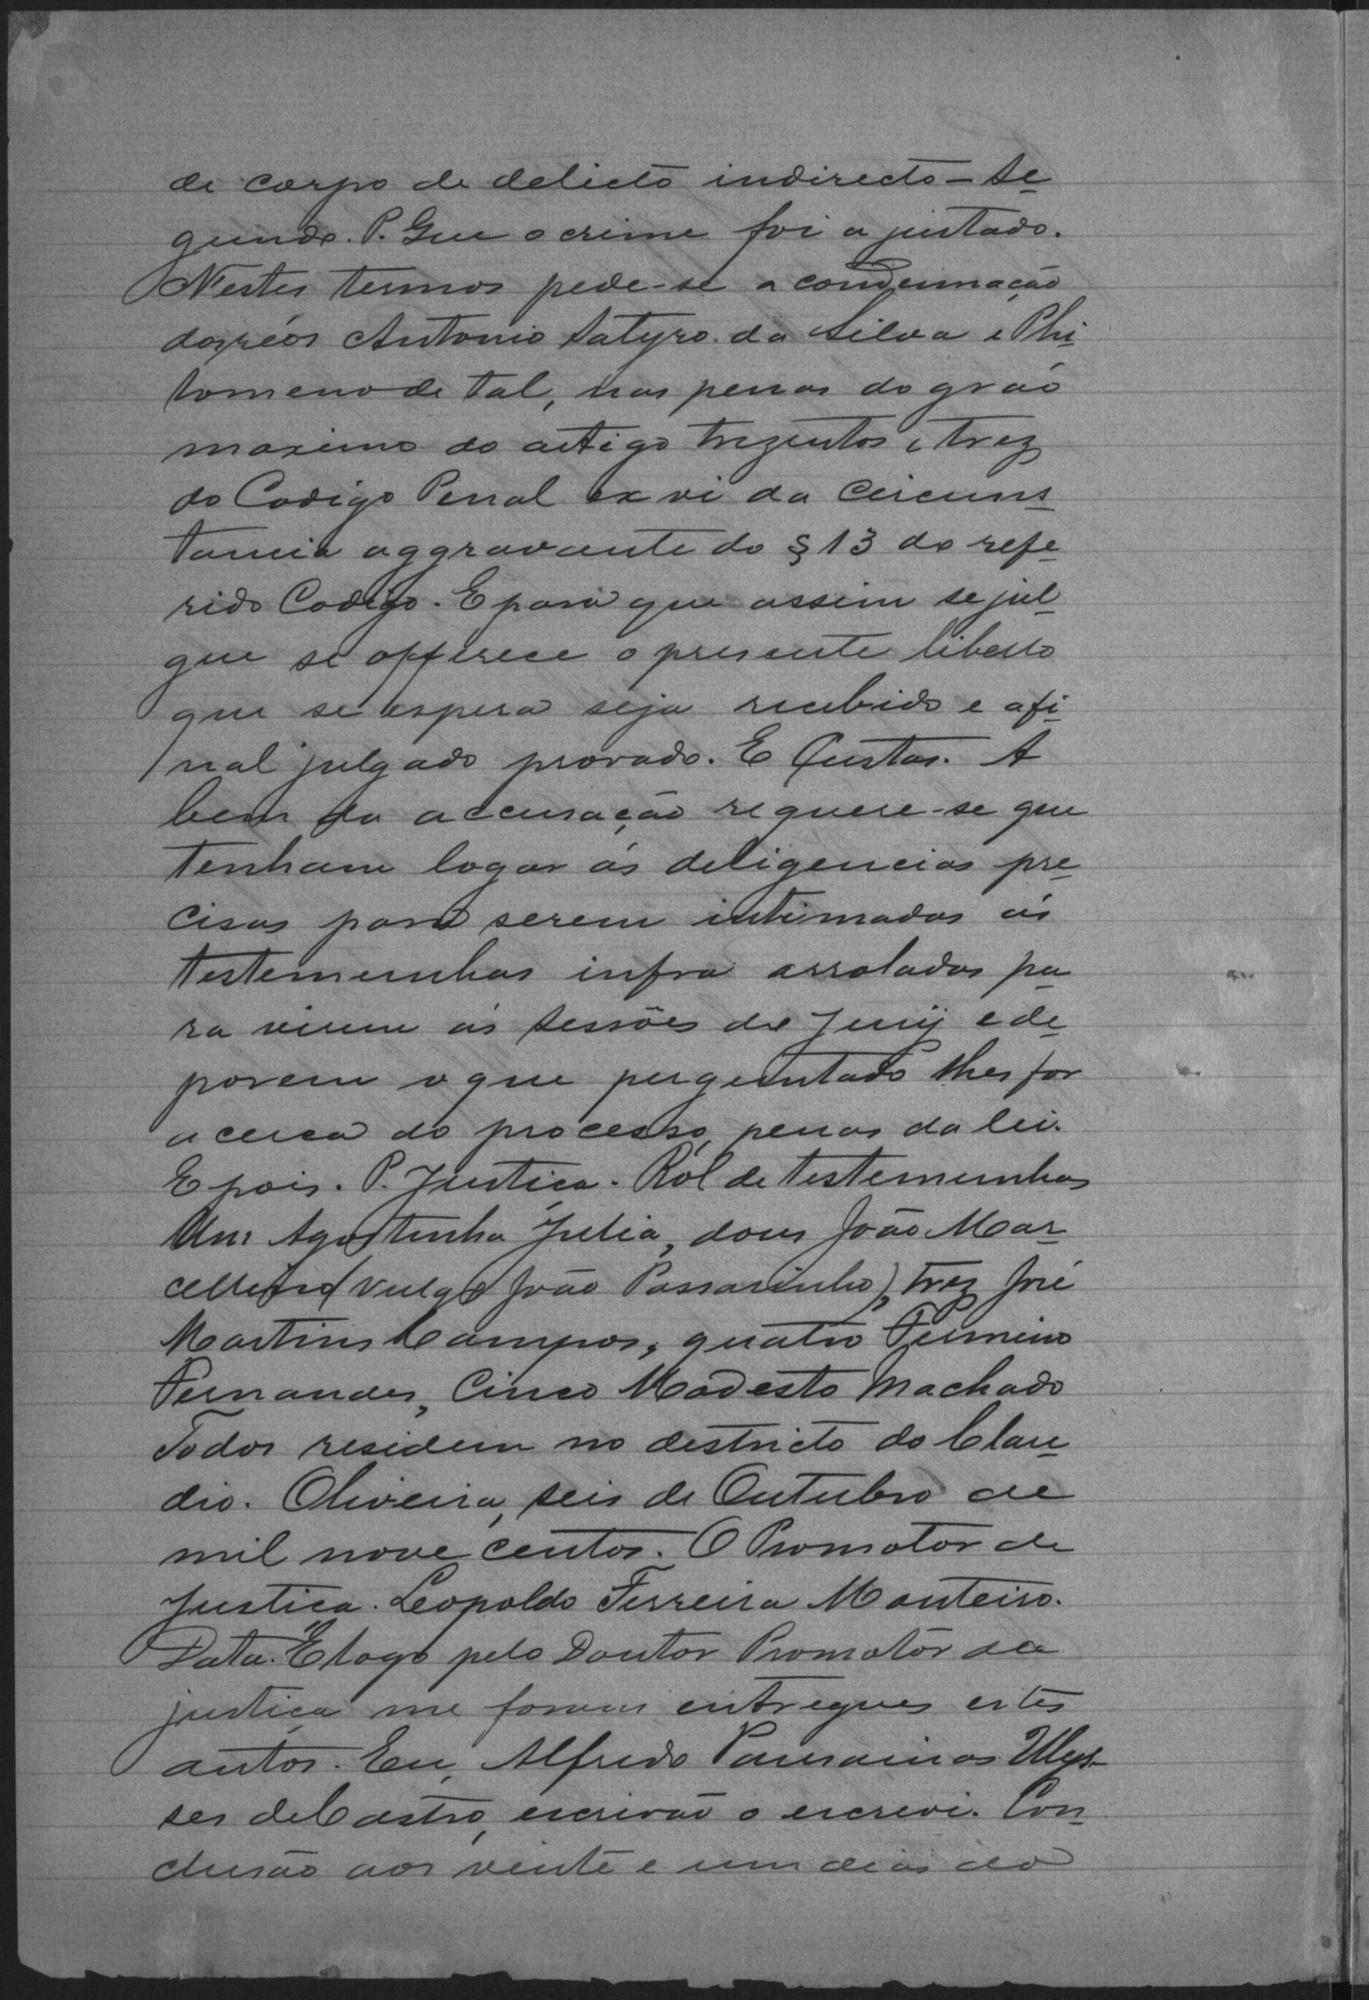 de corpo de delicto indirecto – Se-
gundo. P. Que o crime foi ajustado.
Nestes termos pede-se a condemnação
dos réos Antonio Satyro da Silva e Phi-
lomeno de tal, nas penas do gráo
maximo do artigo trezentos e trez
do Codigo Penal ex vi da circuns-
tancia aggravante do § 13 do refe-
rido Codigo. E para que assim se jul-
gue se offerece o presente libello
que se espera seja recebido e afi-
nal julgado provado. E Custas. A
bem da accusação requere-se que
tenham logar ás deligencias pre-
cisas para serem intimadas ás
testemunhas infra arroladas pa-
ra virem ás sessões do Jury e de-
porem o que perguntado lhes for
acerca do processo, penas da lei.
E pois. P. Justiça. Ról de testemunhas
Um Agostinho Julia, dous João Mar-
cellino (vulgo João Passarinho), trez José
Martins Campos, quatro Firmino
Fernandes, Cinco Modesto Machado
Todos residem no destricto do Clau-
dio. Oliveira, seis de Outubro de
mil nove centos. O Promotor de
Justiça. Leopoldo Ferreira Monteiro.
Data. E logo pelo Doutor Promotor da
justiça me foram entregues estes
autos. Eu, Alfredo Pausanias Ulys-
ses de Castro, escrivão o escrevi. Con-
clusão aos vinte e um dias do